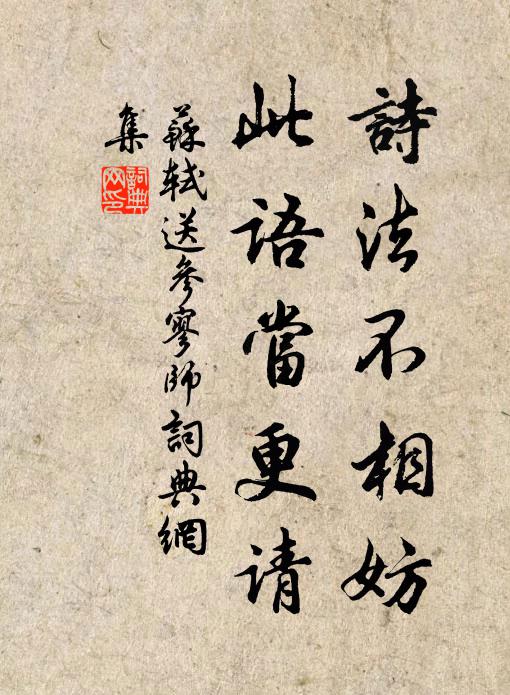 詩法不相妨
此語當更请
蘇轼送參寥師詞典網
集
詞典
网印